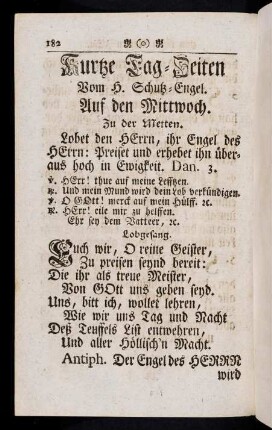 182 ❧ (o) ❧
Kurtze Tag-Zeiten
Vom H. Schutz-Engel.
Auf den Mittwoch.
Zu der Metten.
Lobet den HErrn, ihr Engel des
HErrn: Preiset und erhebet ihn über-
aus hoch in Ewigkeit. Dan. 3.
℣. HErr! thue auf meine Lefftzen.
℟. Und mein Mund wird dein Lob verkündigen.
℣. O GOtt! merck auf mein Hülff. ꝛc.
℟. HErr! eile mir zu helffen.
Ehr sey dem Vatter, ꝛc.
Lobgesang.
Euch wir, O reine Geister,
Zu preisen seynd bereit:
Die ihr als treue Meister,
Von GOtt uns geben seyd.
Uns, bitt ich, wollet lehren,
Wie wir uns Tag und Nacht
Deß Teuffels List entwehren,
Und aller Höllisch'n Macht.
Antiph. Der Engel des HERRN
wird